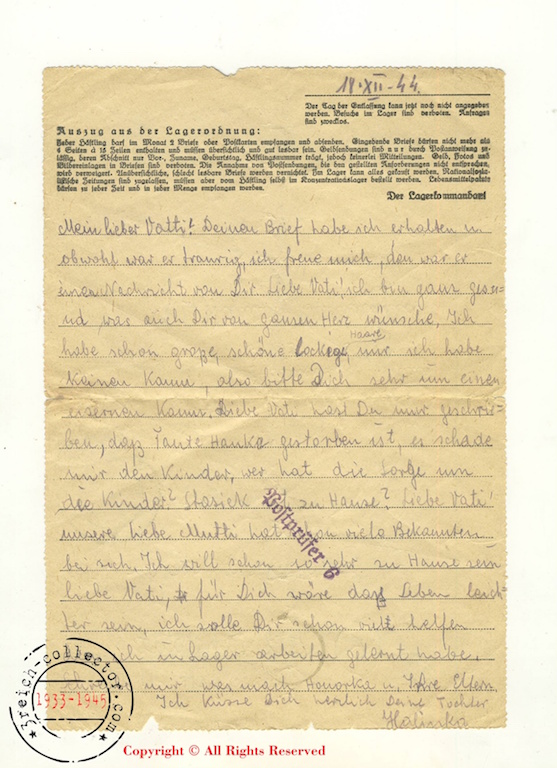 18·XII-44.
Der Tag der Entlassung kann jetzt noch nicht angegeben
werden. Besuche im Lager sind verboten. Anfragen
sind zwecklos.
Auszug aus der Lagerordnung:
Jeder Häftling darf im Monat 2 Briefe oder Postkarten empfangen und absenden. Eingehende Briefe dürfen nicht mehr als
4 Seiten à 15 Zeilen enthalten und müssen übersichtlich und gut lesbar sein. Geldsendungen sind nur durch Postanweisung zu-
lässig, deren Abschnitt nur Vor-, Zuname, Geburtstag, Häftlingsnummer trägt, jedoch keinerlei Mitteilungen. Geld, Fotos und
Bildereinlagen in Briefen sind verboten. Die Annahme von Postsendungen, die den gestellten Anforderungen nicht entsprechen,
wird verweigert. Unübersichtliche, schlecht lesbare Briefe werden vernichtet. Im Lager kann alles gekauft werden. Nationalsozia-
listische Zeitungen sind zugelassen, müssen aber vom Häftling selbst im Konzentrationslager bestellt werden. Lebensmittelpakete
dürfen zu jeder Zeit und in jeder Menge empfangen werden.
Der Lagerkommandant
Mein lieber Vatti! Deinen Brief habe ich erhalten u.
obwohl war er traurig, ich freue mich, den war er
Nachricht von Dir. Liebe Vati! ich bin ganz gesu=
nd was auch Dir von ganzen Herz wünsche. Ich
habe schon große, schöne lockige Haare, nur ich habe
keinen Kamm, also bitte Dich sehr um einen
eisernen Kamm. Liebe Vati hast Du mir geschrie=
ben, daß Tante Hanka gestorben ist, es schade
mir den Kinder, wer hat die Sorge um
die Kinder? zu Hause? Liebe Vati!
unsere liebe Mutti hat schon viele Bekannten
bei sich. Ich will schon so sehr zu Hause sein
liebe Vati, für Dich wäre das Leben leich=
ter sein, ich solle Dir schon vielt helfen
ich in Lager arbeiten gelernt habe.
mir was mach Honorka u. Ihre Eltern.
Ich Küsse Dich herzlich Deine Tochter
Halinka
Postprüfer 6
3reich-collector.com
1933-1945
Copyright © All Rights Reserved